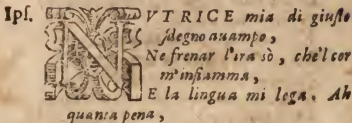 Ipſ. NVTRICE mia di giuſto
ſdegno auampo,
Ne frenar l'ira sò, che'l cor
m'infiamma,
E la lingua mi lega. Ah
quanta pena,